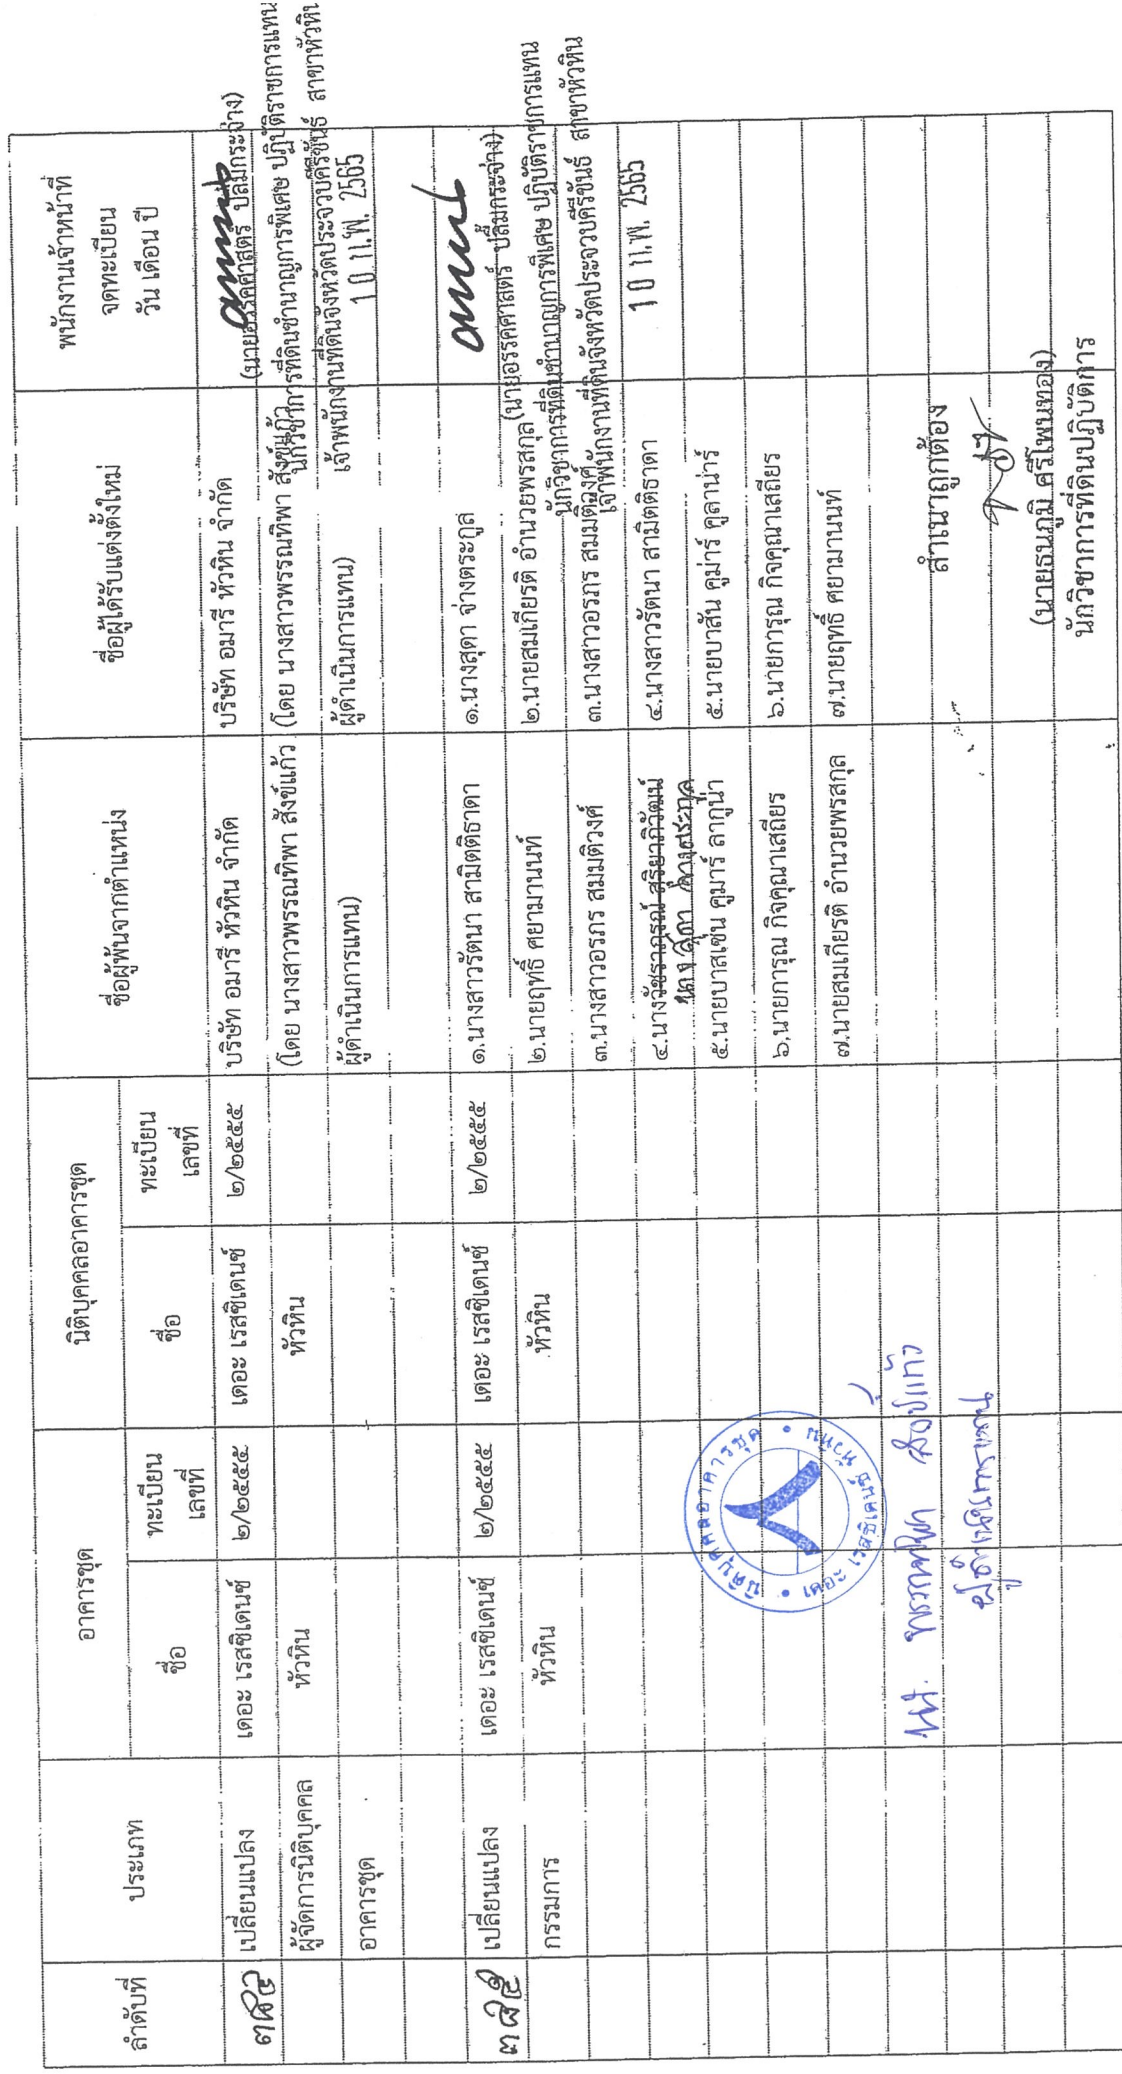 ลำดับที่
ประเภท
อาคารชุด
ชื่อ
ทะเบียน
เลขที่
นิติบุคคลอาคารชุด
ชื่อ
ทะเบียน
เลขที่
ชื่อผู้พ้นจากตำแหน่ง
ชื่อผู้ได้รับแต่งตั้งใหม่
พนักงานเจ้าหน้าที่
จดทะเบียน
วัน เดือน ปี
เปลี่ยนแปลง
ผู้จัดการนิติบุคคล
อาคารชุด
เดอะ เรสซิเดนซ์
หัวหิน
๒/๒๕๕๕
เดอะ เรสซิเดนซ์
หัวหิน
๒/๒๕๕๕
บริษัท อมารี หัวหิน จำกัด
(โดย นางสาวพรรณทิพา สังข์แก้ว
ผู้ดำเนินการแทน)
บริษัท อมารี หัวหิน จำกัด
(โดย นางสาวพรรณทิพา สังข์แก้ว
ผู้ดำเนินการแทน)
(นายอรรคศาสตร์ ปลื้มกระจ่าง)
นักวิชาการที่ดินชำนาญการพิเศษ ปฏิบัติราชการแทน
เจ้าพนักงานที่ดินจังหวัดประจวบคีรีขันธ์ สาขาหัวหิน
10 ก.พ. 2565
เปลี่ยนแปลง
กรรมการ
เดอะ เรสซิเดนซ์
หัวหิน
๒/๒๕๕๕
เดอะ เรสซิเดนซ์
หัวหิน
๒/๒๕๕๕
๑.นางสาวรัตนา สามิตติธาดา
๒.นายฤทธิ์ ศยามานนท์
๓.นางสาวอรภร สมมติวงศ์
๔.นางวัชราภรณ์ สุริยาภิวัฒน์
นางสุดา จ่างตระกูล
๕.นายบาสเซ่น คูมาร์ ลากูน่า
๖.นายการุณ กิจคุณาเสถียร
๗.นายสมเกียรติ อำนวยพรสกุล
๑.นางสุดา จ่างตระกูล
๒.นายสมเกียรติ อำนวยพรสกุล
๓.นางสาวอรภร สมมติวงศ์
๔.นางสาวรัตนา สามิตติธาดา
๕.นายบาสัน คูม่าร์ คูลาน่าร์
๖.นายการุณ กิจคุณาเสถียร
๗.นายฤทธิ์ ศยามานนท์
(นายอรรคศาสตร์ ปลื้มกระจ่าง)
นักวิชาการที่ดินชำนาญการพิเศษ ปฏิบัติราชการแทน
เจ้าพนักงานที่ดินจังหวัดประจวบคีรีขันธ์ สาขาหัวหิน
10 ก.พ. 2565
นิติบุคคลอาคารชุด
เดอะ เรสซิเดนซ์ หัวหิน
นส. พรรณทิพา สังข์แก้ว
ผู้ดำเนินการแทน
สำเนาถูกต้อง
(นายธนภูมิ ศรีโพนทอง)
นักวิชาการที่ดินปฏิบัติการ